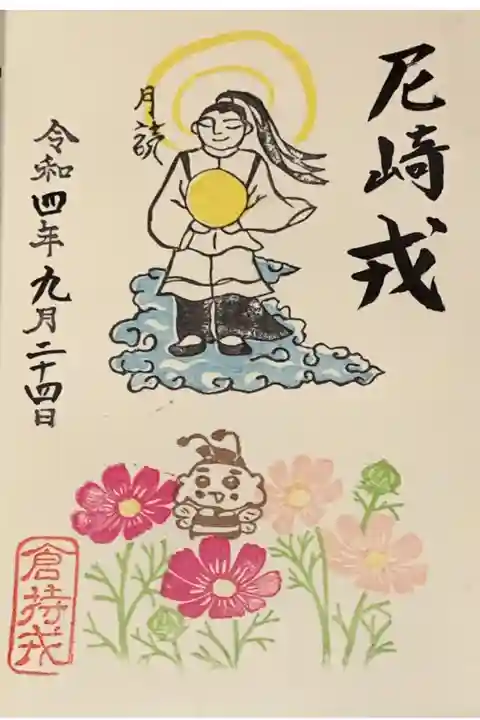 尼崎戎
月読
令和四年九月二十四日
倉持戎